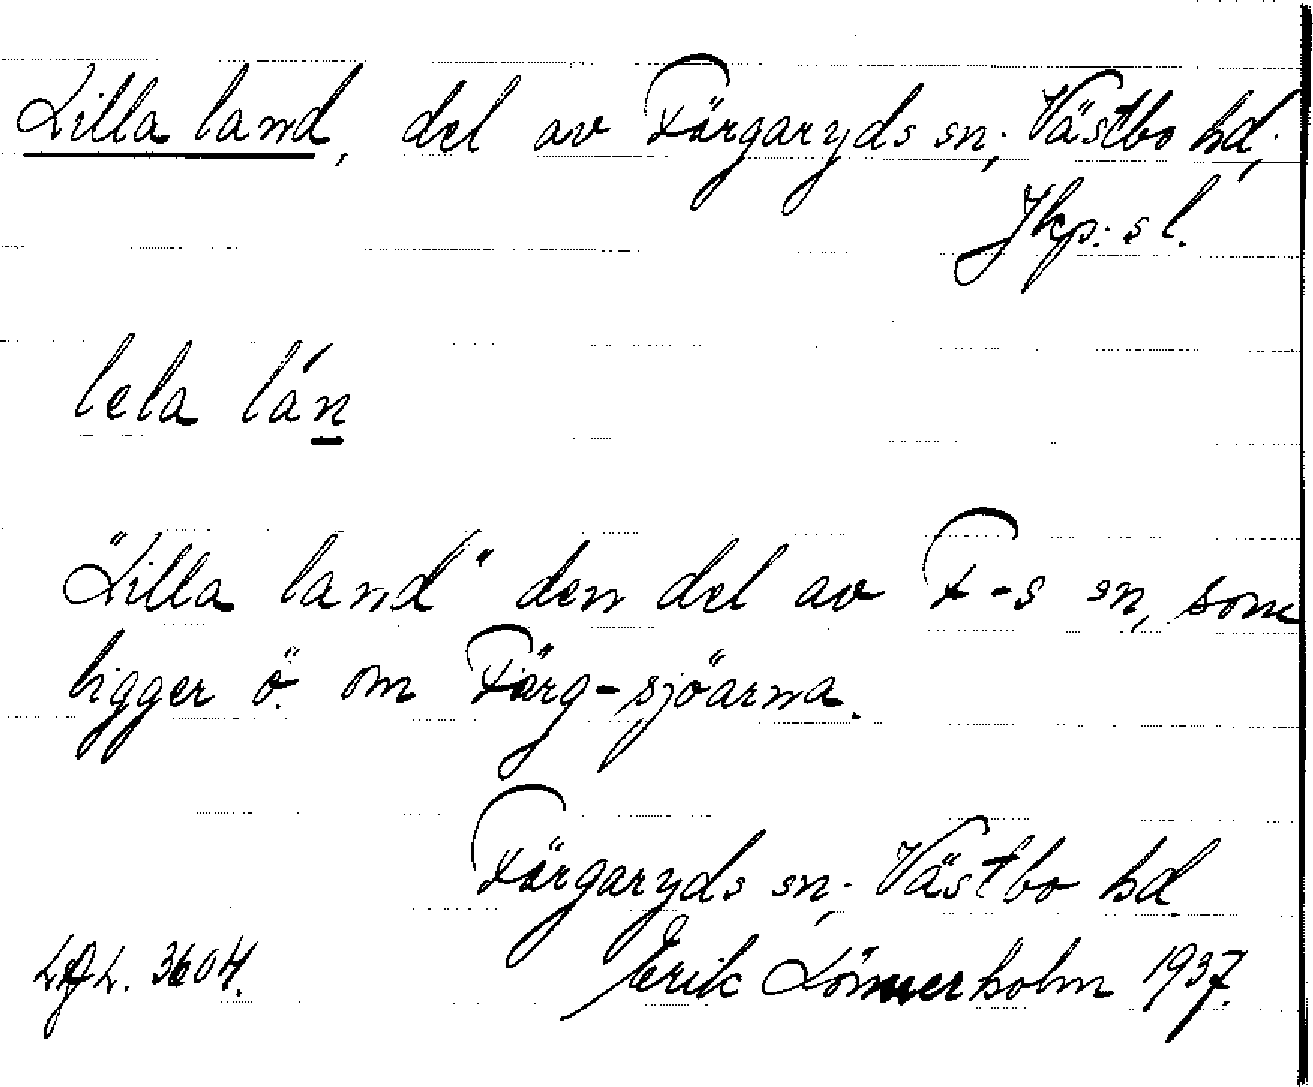 Lilla land, del av Färgaryds sn; Västbo hd;
Jkp:s l.
lela lán
"Lilla land" den del av F-s sn, som
ligger ö. om Färg-sjöarna.
Färgaryds sn; Västbo hd
3604. Erik Lönnerholm 1937.